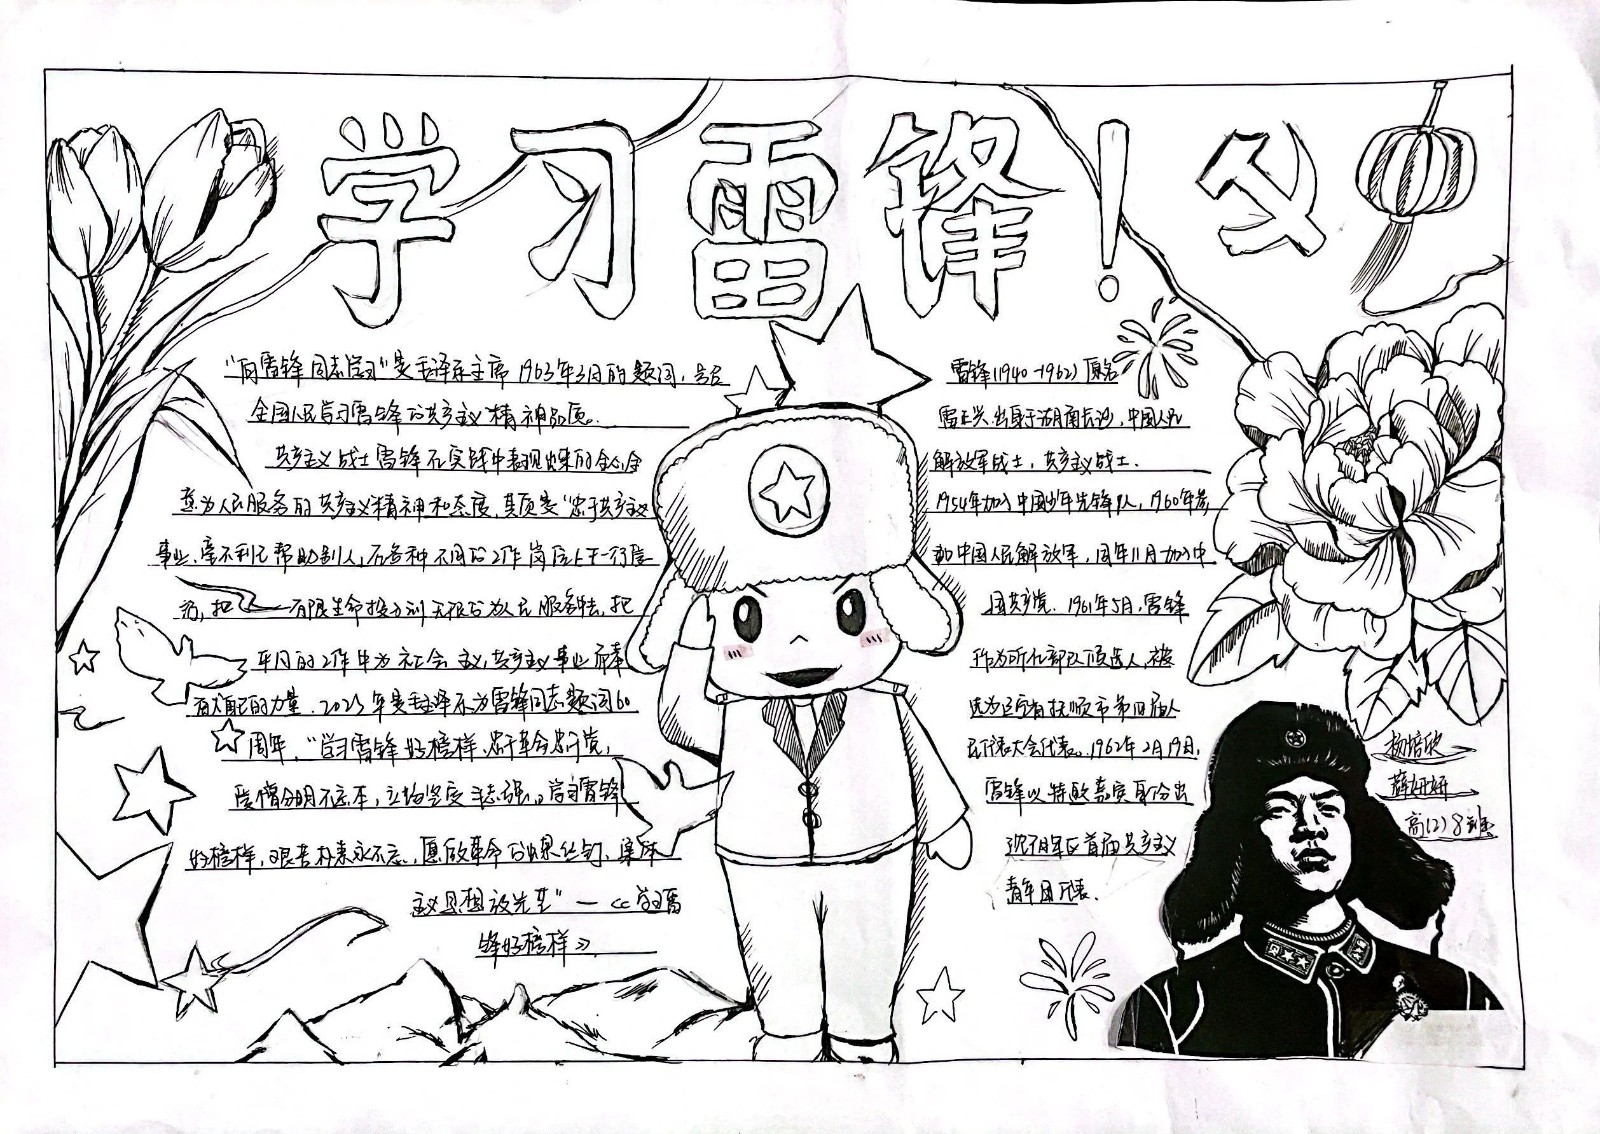 学习雷锋!
"向雷锋同志学习"是毛泽东主席1963年3月的题词,号召
全国人民学习雷锋的共产主义精神品质.
共产主义战士雷锋在实践中表现出来的全心全
意为人民服务的共产主义精神和态度,其质是"忠于共产主义
事业、毫不利己帮助别人,在各种不同的工作岗位上干一行爱
有限生命投入到无限的为人民服务中去,把
平凡的工作中为社会主义,共产主义事业而奉
的力量.2023年是毛泽东为雷锋同志题词60
周年,"学习雷锋好榜样,忠于革命忠于党,
爱憎分明不忘本,立场坚定斗志强。学习雷锋
好榜样,艰苦朴素永不忘,愿做革命的螺丝钉,集体
主义思想放光芒"—《学习雷
锋好榜样》.
雷锋(1940-1962)原名
雷正兴.出身于湖南长沙,中国人民
解放军战士,共产主义战士.
1954年加入中国少年先锋队,1960年参
加中国人民解放军,同年11月加入中
国共产党.1961年5月,雷锋
作为所在部队候选人,被
选为辽宁省抚顺市第四届人
民代表大会代表.1962年2月19日,
雷锋以特邀嘉宾身份出
沈阳军区首届共产主义
青年团代表.
杨培欣
薛妍妍
高(2)8班